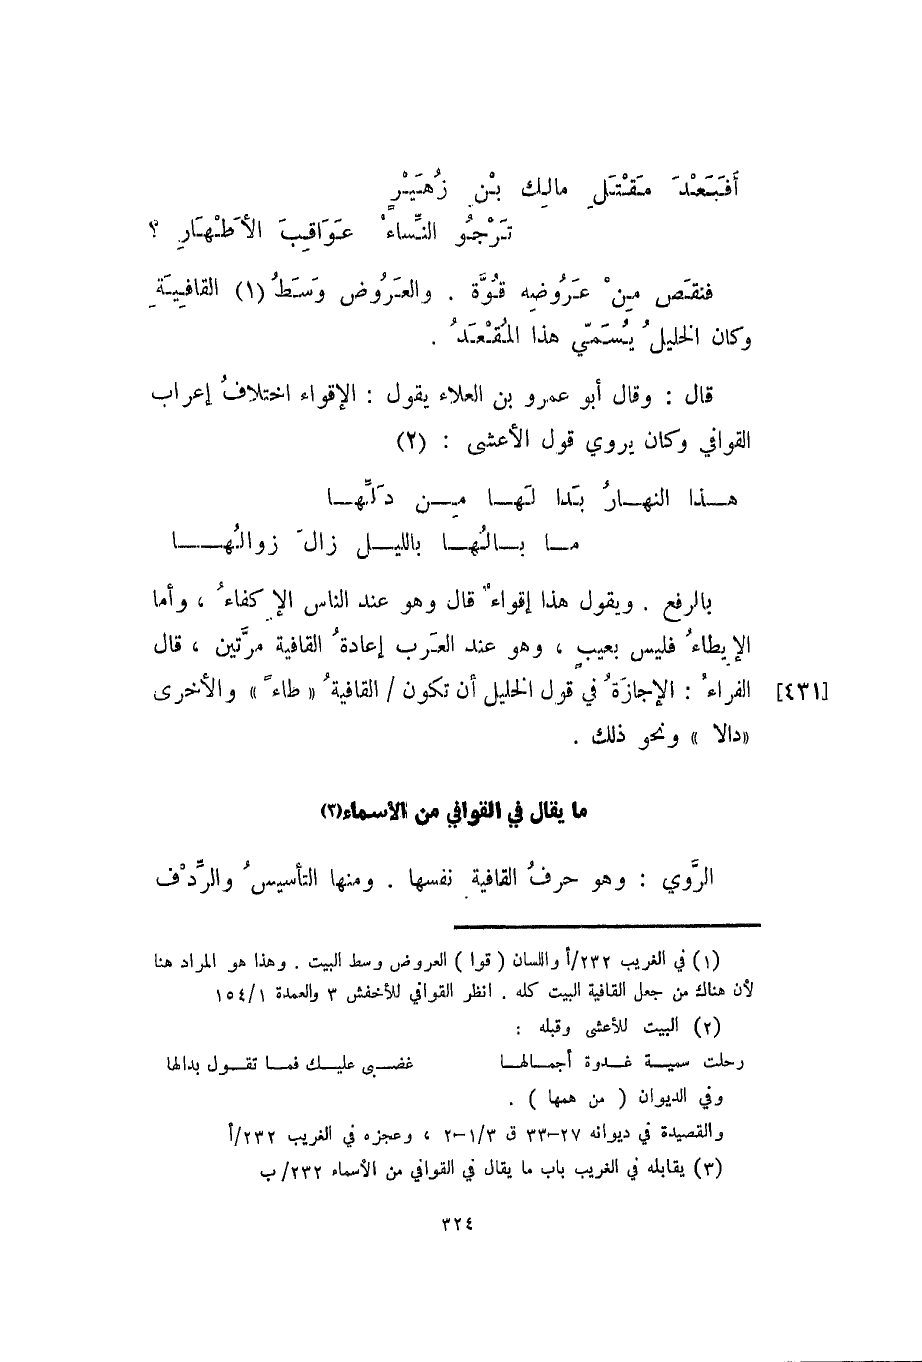 أَفَبَعْدَ مَقْتَلِ مالِك بْنِ زُهَيْرٍ
تَرْجُو النِّساءْ عَوَاقِبَ الأَطْهَارِ ؟
فنقَص مِنْ عَرُوضِه قُوَّة . والعَرُوض وَسَطُ (١) القافِيَةِ
وكان الخليلُ يُسَمِّي هذا المُقْعَدُ .
قال : وقال أبو عمرو بن العلاء يقول : الإقواء اختلافُ إعراب
القوافي وكان يروي قول الأعشى : (٢)
هـذا النهـارُ بَدا لَهـا مِـن دَلِّهـا
مـا بـالُهـا بالليـل زالَ زوالُهـا
بالرفع . ويقول هذا إقواءٌ قال وهو عند الناس الإِكفاءُ ، وأما
الإيطاءُ فليس بعيبٍ ، وهو عند العَرب إعادةُ القافية مرَّتين ، قال
الفراءُ : الإجازَةُ في قول الخليل أن تكون / القافيةُ « طاءً » والأخرى [٤٣١]
«دالا » ونحو ذلك .
ما يقال في القوافي من الأسماء(٣)
الرَّوي : وهو حرفُ القافيةِ نفسها . ومنها التأسيسُ والرِّدْف
(١) في الغريب ٢٣٢/أ واللسان ( قوا ) العروض وسط البيت . وهذا هو المراد هنا
لأن هناك من جعل القافية البيت كله . انظر القوافي للأخفش ٣ والعمدة ١٥٤/١
(٢) البيت للأعشى وقبله :
رحلت سميـة غـدوة أجمـالهـا غضـبى عليـك فمـا تقـول بدالها
وفي الديوان ( من همها ) .
والقصيدة في ديوانه ٢٧–٣٣ ق ١/٣–٢ ، وعجزه في الغريب ٢٣٢/أ
(٣) يقابله في الغريب باب ما يقال في القوافي من الأسماء ٢٣٢/ب
٣٢٤